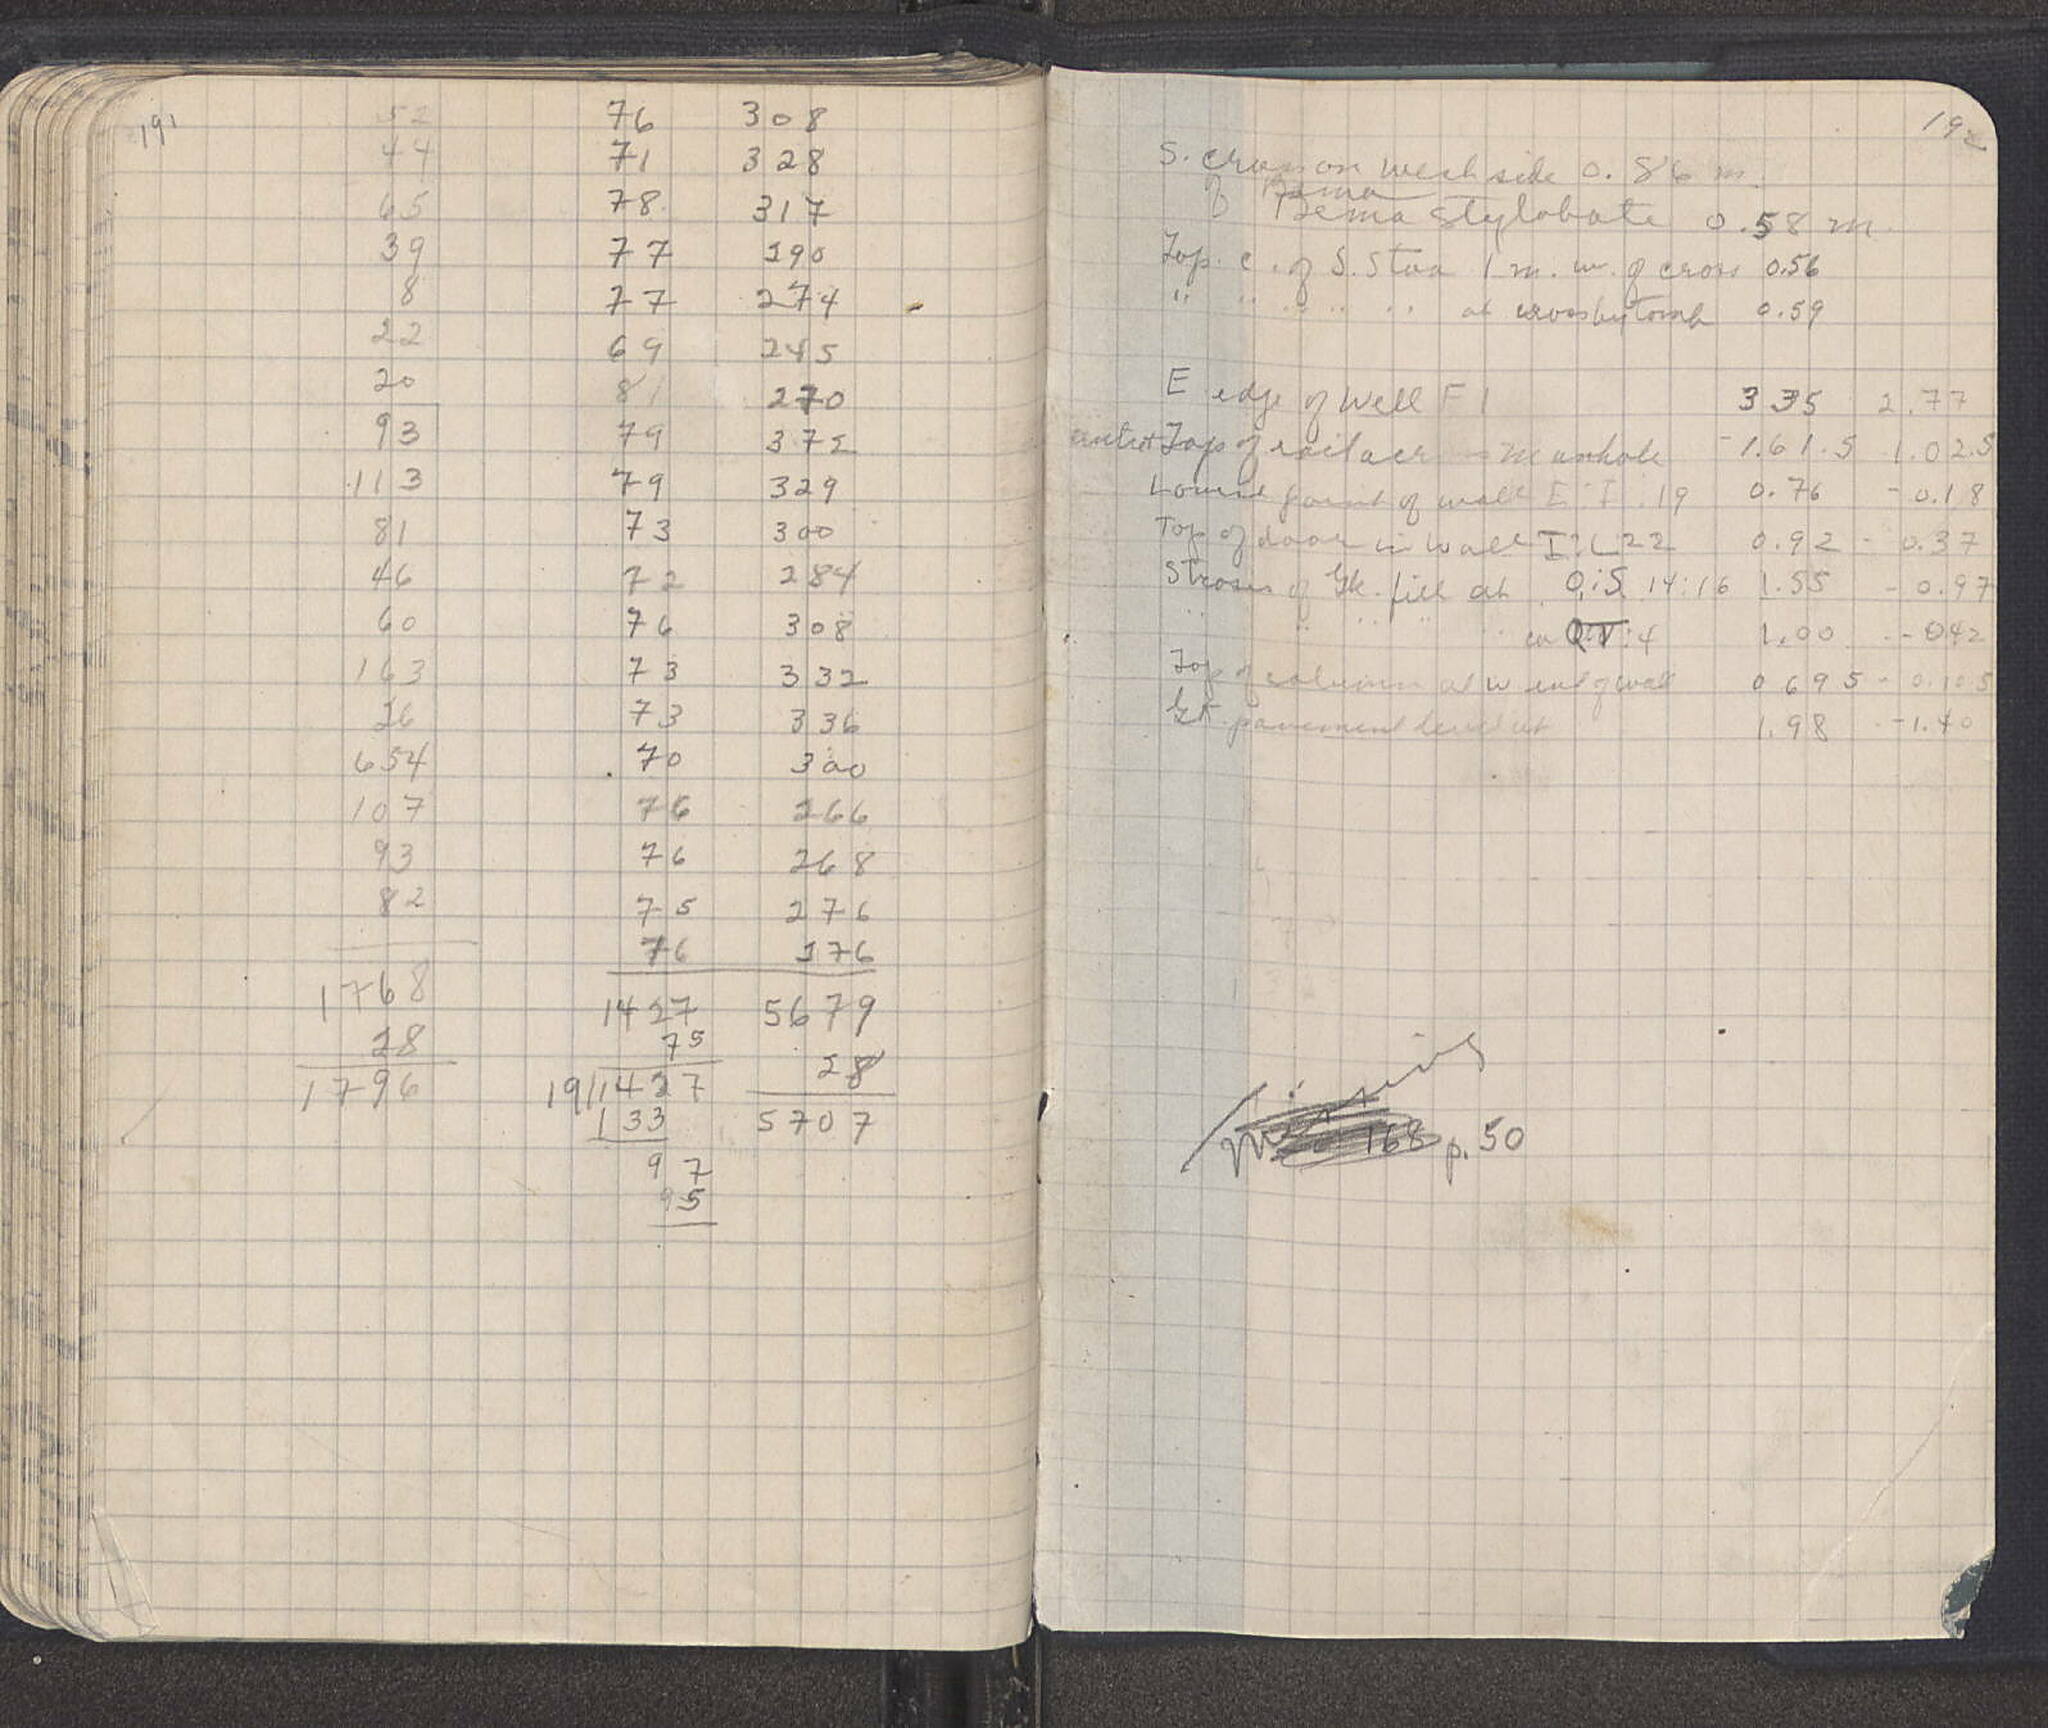 191
52 76 308
44 71 328
65 78 317
39 77 290
8 77 274
22 69 245
20 81 270
93 79 372
113 79 329
81 73 300
46 72 284
60 76 308
163 73 332
26 73 336
654 70 300
107 76 266
93 76 268
82 75 276
76 176
1768 1427 5679
28 75 28
1796 19/1427 5707
133
97
95
192
S. cross on west side 0.86 m.
of Bema
Bema stylobate 0.58 m.
Top c. of S. Stoa 1 m. w. of cross 0.56
" " " " " at cross by tomb 0.59
E edge of Well F 1 3 35 2.77
Top of Manhole -1.61.5 1.02.5
Lowest point of wall E: I: 19 0.76 -0.18
Top of door in wall I: L 22 0.92 - 0.37
Stroses of Gk. fill at O:S 14:16 1.55 - 0.97
" " " " " 4 1.00 - 042
Top of column at W end of wall 0 695 - 0.105
Gk. pavement level at 1.98 - 1.40
168 p. 50